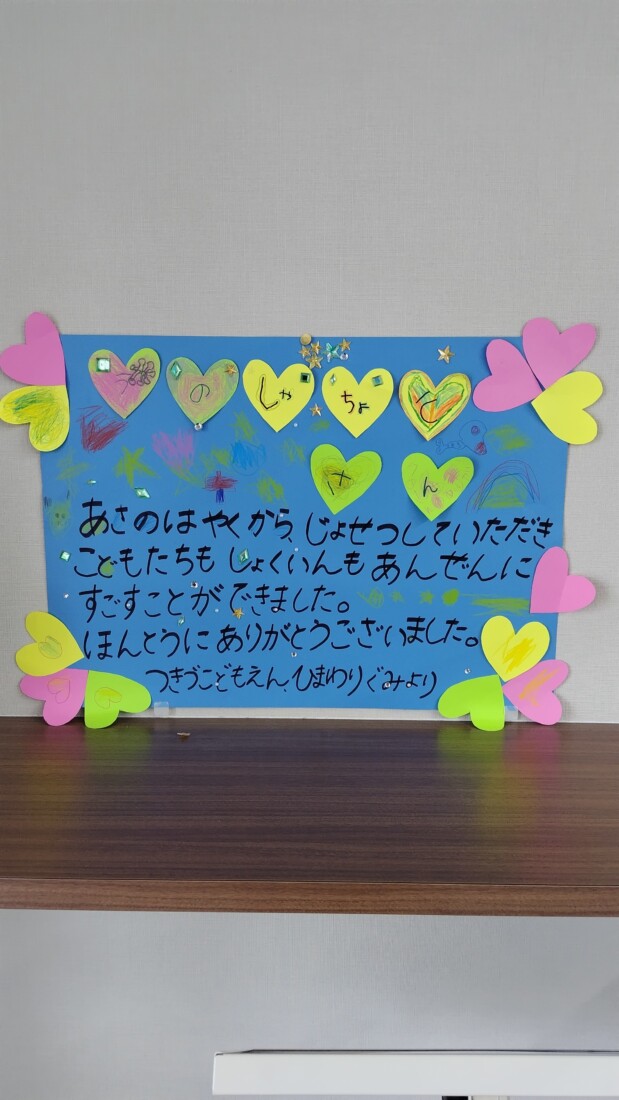 のしゃちょう
さん
あさのはやくから、じょせつしていただき
こどもたちも しょくいんも あんぜんに
すごすことが できました。
ほんとうに ありがとうございました。
つきづこどもえん、ひまわりぐみより